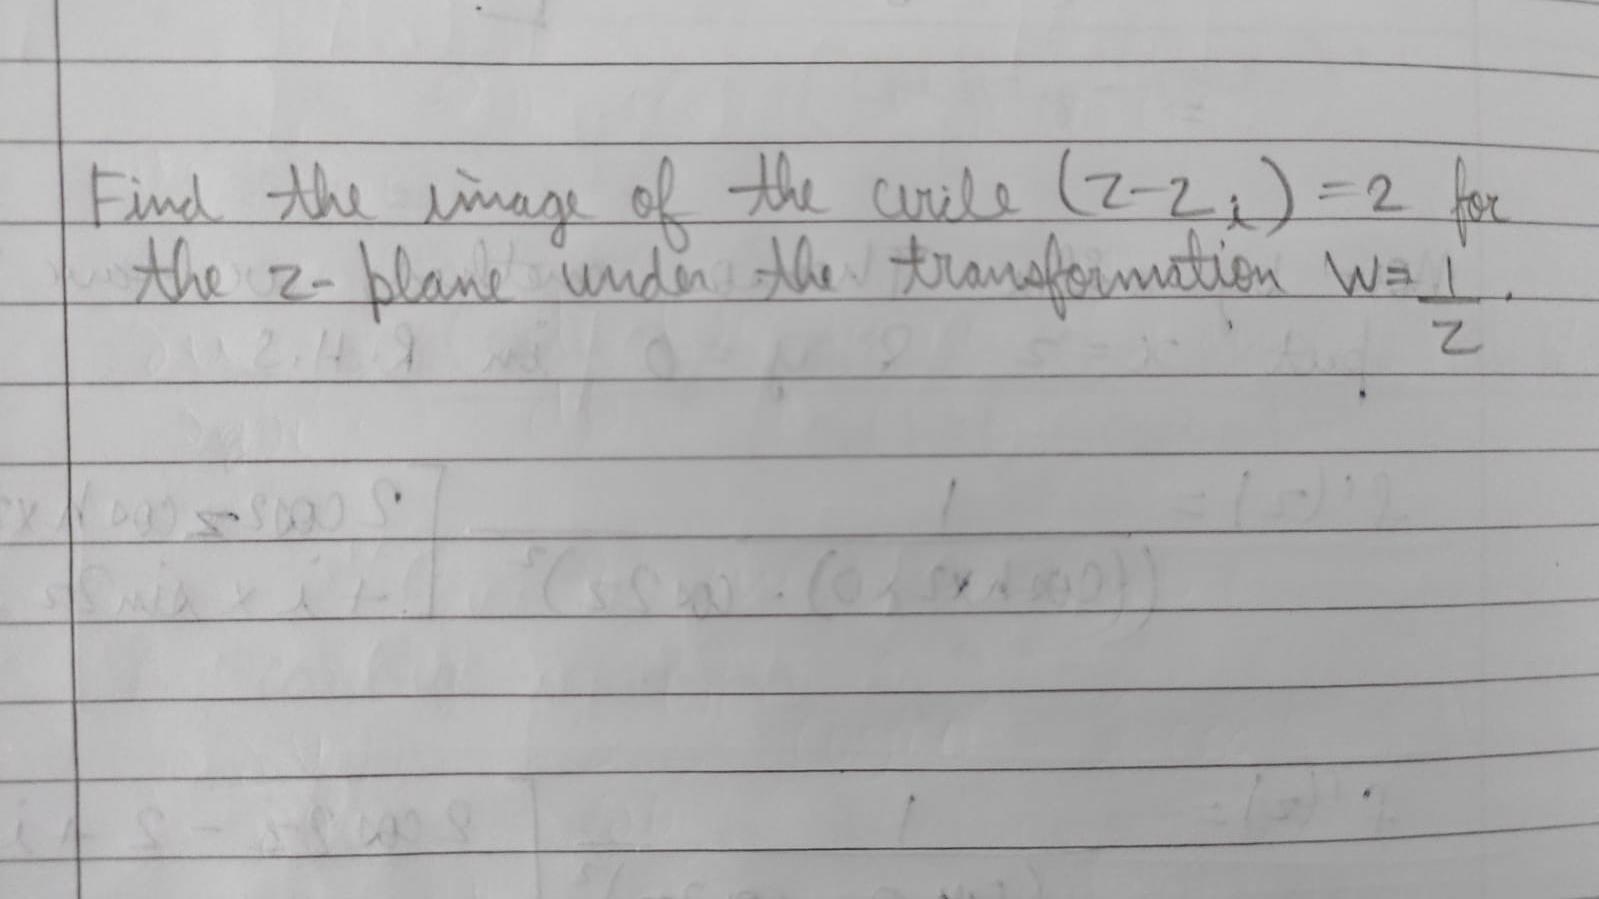 Find the image of the cirile (z-2i) = 2 for
the z-plane under the transformation W = 1/z.